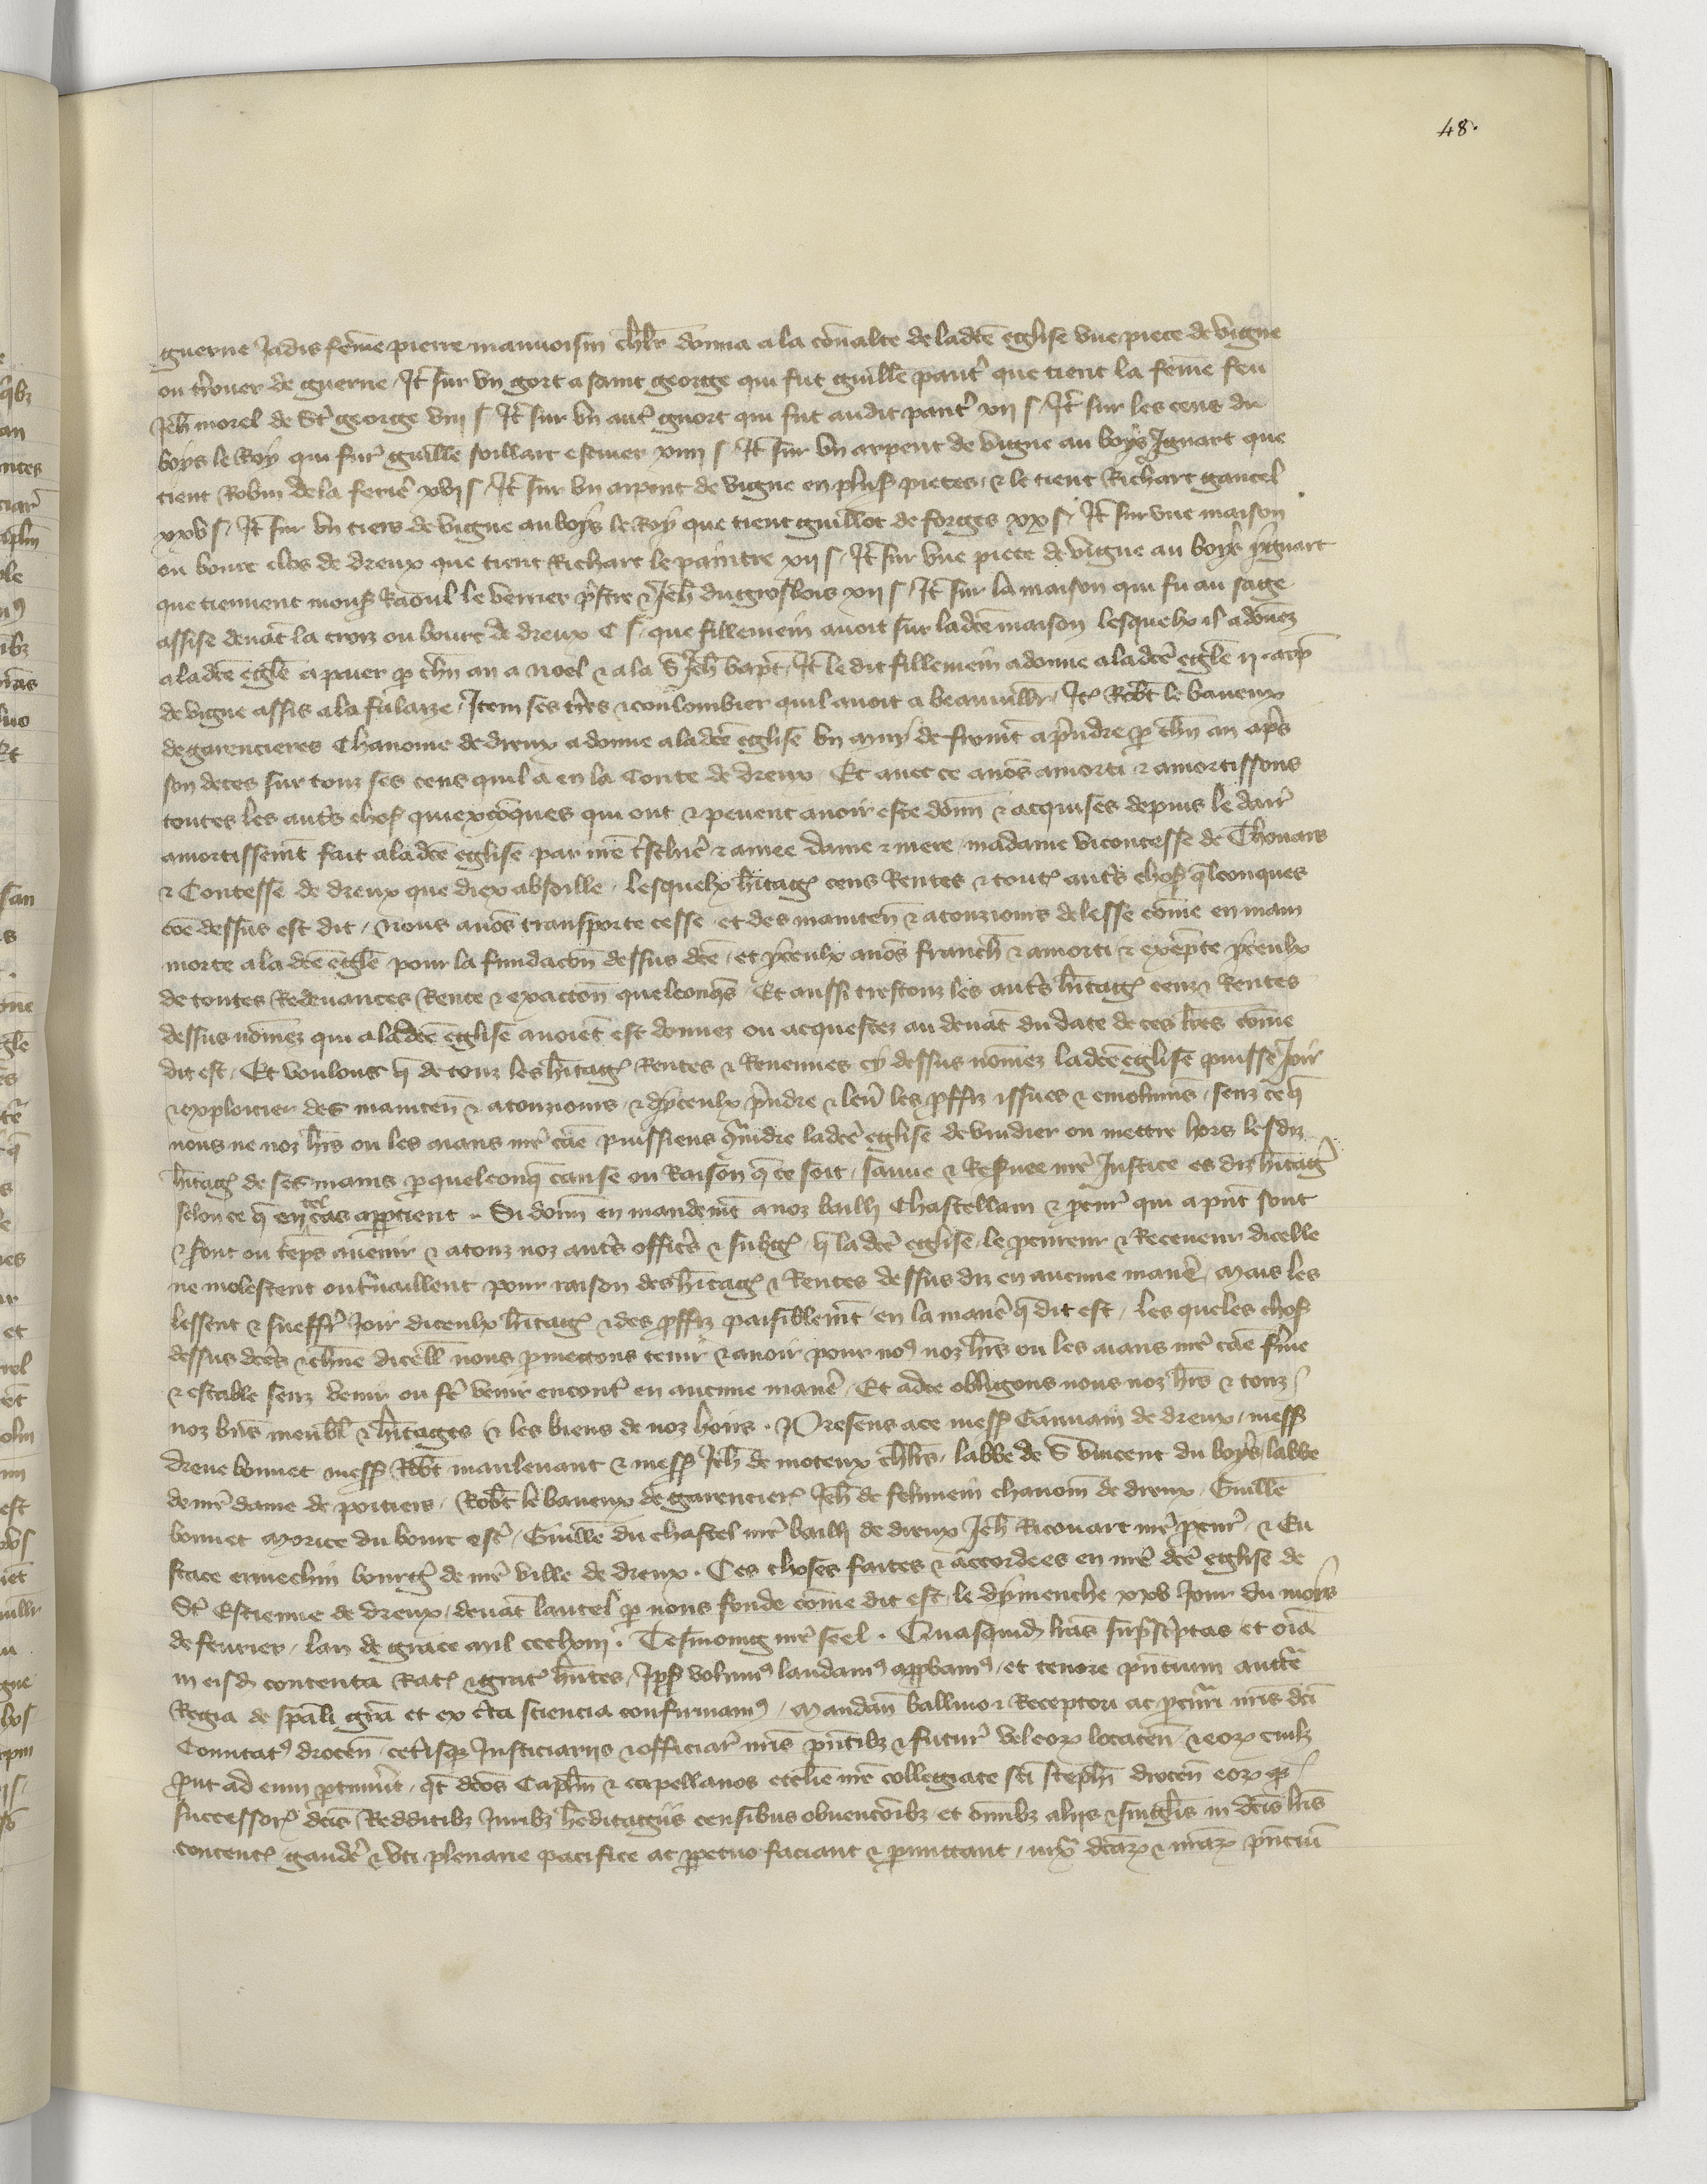 48.
guerne Jadis feme pierre mauuoisin chlr donna a la coualte de ladce eglise vne piece de vigne
ou trouer de guerne / It sur vn gort a saint george qui fut guille pautr que tient la feme feu
Jeh morel de St george viii s / It sur vn autr guort qui fut audit pautr xii s / It sur les cens du
boys le Roy qui fur guille soillart escuier xiiii s / It sur vn arpent de vigne au boys Jguart que
tient Robin de la feriere xvi s / It sur vn arpent de vigne en plus pieces / & le tient Richart gancel
xxv s / It sur vn tiers de vigne au boys le Roy que tient guillot de forges xx s / It sur vne maison
ou bourc clos de dreux que tient Richart le paintre xii s / It sur vne piece de vigne au boys yguart
que tiennent mons Raoul le verrier prestre & Jeh du grosbois xii s / It sur la maison qui fu au sage
assise deuat la croiz ou bourc de dreux C s / que fillemein auoit sur ladce maison lesquelx il a donez
a ladce egle a paier p chn an a noel & a la S Jeh bapt / It le dit fillemein a donne a ladce egle ii arp
de vigne assis a la falaize / Item ses tres & coulombier quil auoit a beauuillr / It Robt le baueux
de garencieres Chanoine de dreux a donne a ladce eglise vn muy de fromt a prndre p chn an aps
son deces sur touz ses cens quil a en la Conte de dreux / Et auec ce auos amorti & amortissons
toutes les autrs chos quiexcoques qui ont & peuent auoir este donn & acquises depuis le darr
amortissemt fait a ladce eglise par nre treschre & amee dame & mere / madame vicontesse de Thouars
& Contesse de dreux que diex absoille / lesquelx hitag cens Rentes & tout autrs chos qlconques
coe dessus est dit / nous auos transporte cesse et des mainten & a touzious delesse come en main
morte a la dce egle pour la fundacon dessus dce / et yceulx auos franch & amorti / & exepte yceulx
de toutes Redeuances Rente & exaccon quelconqs / Et aussi trestouz les autrs hitag cens Rentes
dessus nomez qui a ladce eglise auoiet est donnez ou acquestez au deuat du date de ces lres come
dit est / Et voulons q de touz les hitag Rentes & Reuenues cy dessus nomez ladce eglise puisse Joir
& exploitier des mainten & a touzious / & dyceulx prndre & leur les proffiz issues & emolumes / senz ce q
nous ne noz hrs ou les aians nre cae puissiens graindre ladce eglise de vuidier ou mettre hors lesdiz
hitag de ses mains p quelconq cause ou Raison q ce soit / sauue & Resruee nre Justice es diz hitag
selon ce q en tel cas apptient / Si donn en mandemt a noz bailli Chastellain & pcur qui a pnt sont
& sont ou teps auenir & a touz noz autrs officrs & subgs / q la dce eglise / le procureur & Receueur dicelle
ne molestent ou trauaillent pour raison des hitag & Rentes dessus diz en aucune manre / Mais les
lessent & sueffr Joir diceulx hitag & des proffiz paisiblemt en la manre q dit est / les queles chos
dessus dces & chne dicell nous pmectons tenir & auoir pour nos noz hrs ou les aians nre cae ferme
& estable senz venir ou fe venir encontr en aucune manre / Et adce obligons nous noz hrs & touz
noz bns meubl & hitages / & les biens de noz hoirs . Presens a ce mess Gauuain de dreux / mess
dreue bonnet mess Robt mauleuant & mess Jeh de moteux chlrs / labbe de S vincent du boys / labbe
de nre dame de poitiers / Robt le baueux de garencier Jeh de felmnein chanoin de dreux / Guille
bonnet Morice du bourc escr / Guille du chastel nre bailli de dreux Jeh Ricouart nre pcur / & Eu
stace ermechin bourg de nre ville de dreux . Ces choses faites & accordees en nre dce eglise de
St Estienne de dreux / deuat lautel p nous fonde come dit est / le dymenche xxv Jour du moys
de feurier / lan de grace mil ccclxiii . Tesmoing nre seel . Quasquid lras suprascptas et oia
in eisd contenta Rat & grat hntes / Ipas volums laudams appbams / et tenore pntium auctte
Regia de spali gra et ex cta sciencia confirmams / Mandan balliuo & Receptori ac pcuri nris dci
Comitats drocen / cetisq Justiciariis & officiar nris pntibz & futur vel eorx locaten / & eorx cuilz
put ad eum ptinuit / qt dcos Caplm & capellanos ecclie nre collegiate sci Stephi drocen eorx qz
successor dcis Redditibz Juribz hreditagiis censibus obuencoibz et omibz aliis & singlis in dcis lris
content gaudere & vti plenarie pacifice ac ppetuo faciant & pmittant / iux dcarx & nrarx pntiu